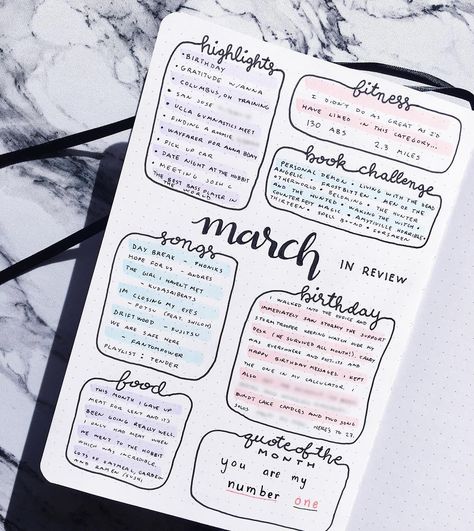 highlights
• BIRTHDAY
• GRATITUDE W/ANNA
• COLUMBUS, OH TRAINING
• SAN JOSE
• UCLA GYMNASTICS MEET
• FINDING A ROOMIE
• WAYFARER FOR ALMA BDAY
• PICK UP CAR
• DATE NIGHT AT THE HOBBIT
• MEETING JOSH C
THE BEST BASS PLAYER IN
THE WORLD
fitness
I DIDN'T DO AS GREAT AS I'D
HAVE LIKED IN THIS CATEGORY...
130 ABS 2.3 MILES
book challenge
PERSONAL DEMON • LIVING WITH THE DEAD
ANGELIC • FROSTBITTEN • MEN OF THE
OTHERWORLD • RELOADING • THE HUNTER
AND THE HUNTED • WAKING THE WITCH
COUNTERFEIT MAGIC • AMITYVILLE HORRIBLE
THIRTEEN • SPELL BOUND • FORSAKEN
march
IN REVIEW
songs
DAY BREAK - PHONIKS
HOPE FOR US - ANDRES
THE GIRL I HAVEN'T MET
- KUDASAIBEATS
IM CLOSING MY EYES
- POTSU (FEAT. SHILOH)
DRIFTWOOD - FUJITSU
WE ARE SAFE HERE
- FANTOMPOWER
PLAYLIST: TENDER
birthday
I WALKED INTO THE OFFICE AND
IMMEDIATELY SAW STANLEY THE SUPPORT
STORMTROOPER KEEPING WATCH OVER MY
DESK (HE SURVIVED ALL MONTH!). FAIRY
WAS EVERYWHERE AND POST-ITS AND
HAPPY BIRTHDAY MESSAGES. I KEPT
THE ONE IN MY CALCULATOR. I
ALSO
BUNDT CAKE CANDLES AND TWO SONG
SOLOS HERES TO 27.
food
THIS MONTH I GAVE UP
MEAT FOR LENT AND IT'S
BEEN GOING REALLY WELL.
I ONLY HAD MEAT WHEN
WE WENT TO THE HOBBIT
WHICH WAS INCREDIBLE.
LOTS OF OATMEAL,
AND RAMEN /SUSHI
quote of the
MONTH
you are my
number one